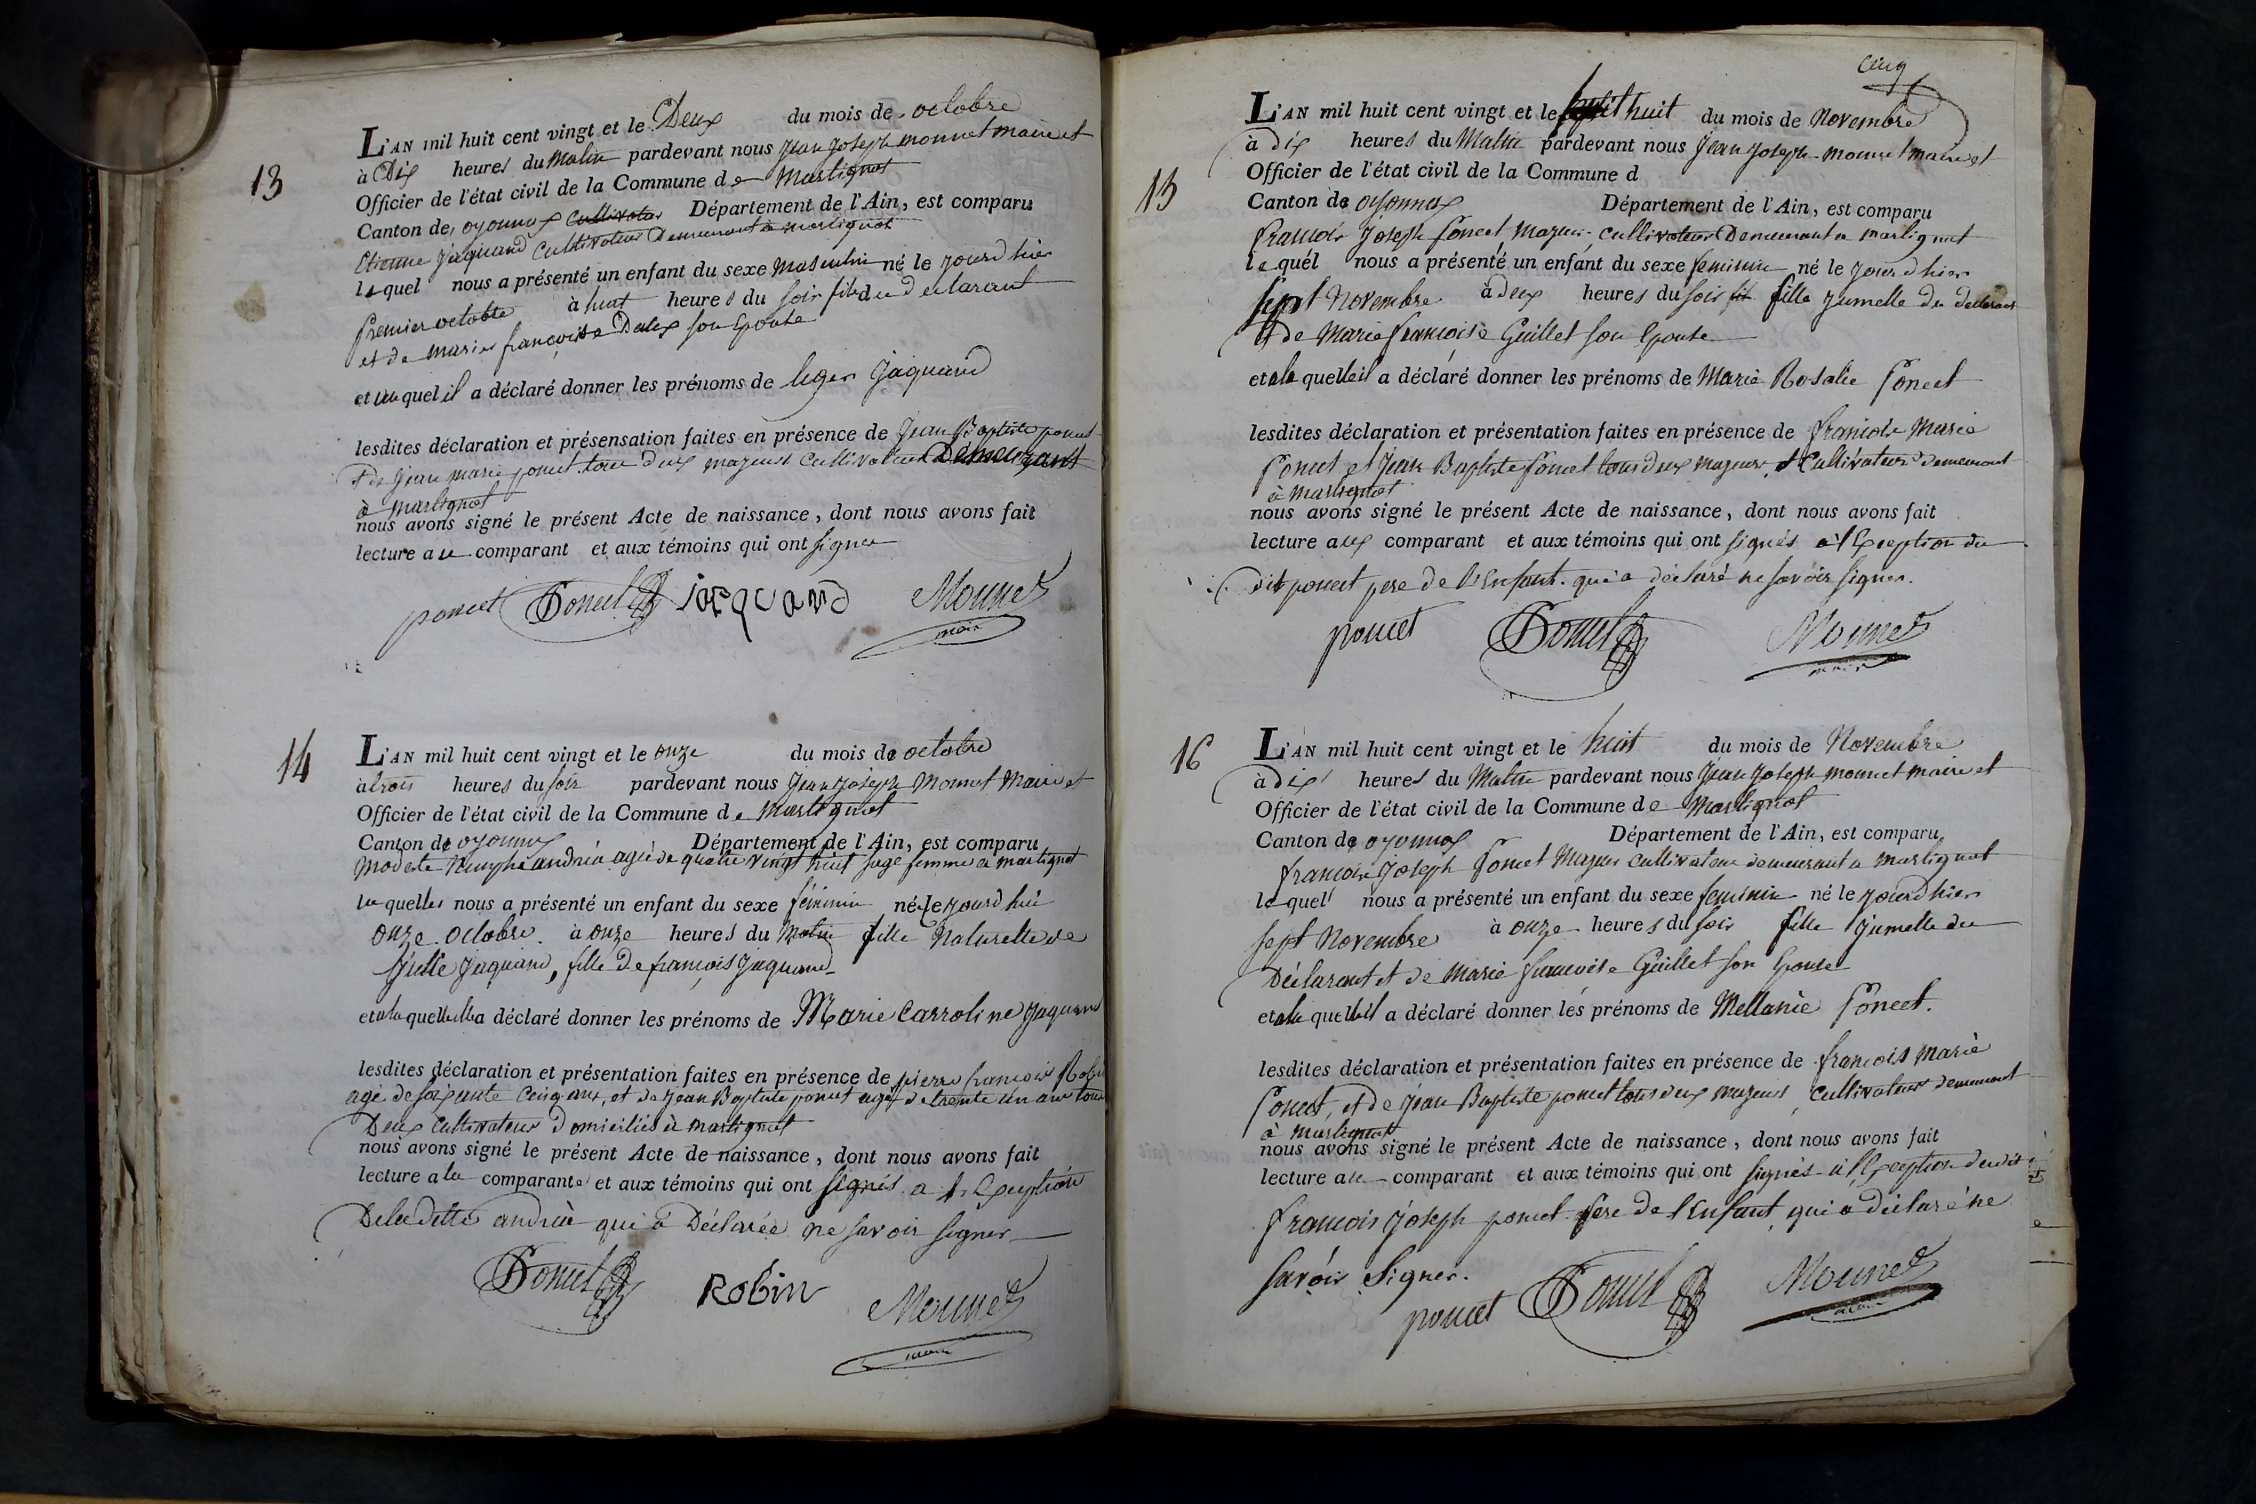 13
L'AN mil huit cent vingt et le Deux du mois de octobre
à Dix heures du Matin pardevant nous Jean Joseph monnet maire et
Officier de l'état civil de la Commune de Martignat
Canton de oyonnax cultivateur Département de l'Ain, est comparu
Etienne Jaquand Cultivateur Demeurant à martignat
lequel nous a présenté un enfant du sexe masculin né le jourd hier
premier octobre à huit heures du soir fils du declarant
et de marie françoise Dulex son Epouse
et auquel il a déclaré donner les prénoms de leger Jaquand
lesdites déclaration et présensation faites en présence de Jean Baptiste poncet
et de jean marie poncet tous deux majeurs cultivateurs Demeurant
à martignat
nous avons signé le présent Acte de naissance, dont nous avons fait
lecture au comparant et aux témoins qui ont signer
poncet Poncet jacquand Monnet
maire
14
L'AN mil huit cent vingt et le onze du mois de octobre
à trois heures du soir pardevant nous Jean Joseph Monnet Maire et
Officier de l'état civil de la Commune de Martignat
Canton de oyonnax Département de l'Ain, est comparu
modeste andréa agée de quatre vingt huit sage femme a martignat
la quelle nous a présenté un enfant du sexe féminin né le jourd hui
onze octobre à onze heures du Matin fille Naturelle de
Julie Jaquand, fille de françois Jaquand
et a la quelle elle a déclaré donner les prénoms de Marie Carroline Jaquand
lesdites déclaration et présentation faites en présence de pierre francois Robin
agé de soixante Cinq ans, et de Jean Baptiste poncet agé de trente un ans tous
Deux Cultivateurs domiciliés à martignat
nous avons signé le présent Acte de naissance, dont nous avons fait
lecture a la comparante et aux témoins qui ont signés a l'Exception
De la ditte andréa qui a Déclarée ne savoir signer
Poncet Robin Monnet
maire
cinq
15
L'AN mil huit cent vingt et le huit du mois de Novembre
à dix heures du Matin pardevant nous Jean Joseph monnet maire et
Officier de l'état civil de la Commune d
Canton de oyonnax Département de l'Ain, est comparu
francois Joseph Poncet Majeur cultivateur Demeurant a martignat
lequél nous a présenté un enfant du sexe feminin né le jourd hier
sept Novembre à deux heures du soir fils fille jumelle du declarant
et de Marie françoise Guillet son Epouse
et a la quelle il a déclaré donner les prénoms de Marie Rosalie Poncet
lesdites déclaration et présentation faites en présence de francois Marie
Poncet et Jean Baptiste Poncet tous deux majeurs et Cultivateurs demeurant
à martignat
nous avons signé le présent Acte de naissance, dont nous avons fait
lecture aux comparant et aux témoins qui ont signés à l'Exception du
dit poncet pere de l'Enfant qui a déclaré ne savoir signer.
poncet Poncet Monnet
maire
16
L'AN mil huit cent vingt et le huit du mois de Novembre
à dix heures du Matin pardevant nous Jean Joseph monnet maire et
Officier de l'état civil de la Commune de Martignat
Canton de oyonnax Département de l'Ain, est comparu
francois Joseph Poncet Majeur cultivateur demeurant a martignat
lequel nous a présenté un enfant du sexe feminin né le jourd hier
sept Novembre à onze heures du soir fille jumelle du
Déclarant et de Marie françoise Guillet son Epouse
et a la quelle il a déclaré donner les prénoms de Mellanie Poncet.
lesdites déclaration et présentation faites en présence de francois Marie
Poncet, et de Jean Baptiste poncet tous deux majeurs, cultivateurs demeurant
à martignat
nous avons signé le présent Acte de naissance, dont nous avons fait
lecture au comparant et aux témoins qui ont signés à l'Exception dudit
francois Joseph poncet pere de l'Enfant, qui a déclaré ne
savoir Signer.
poncet Poncet Monnet
maire